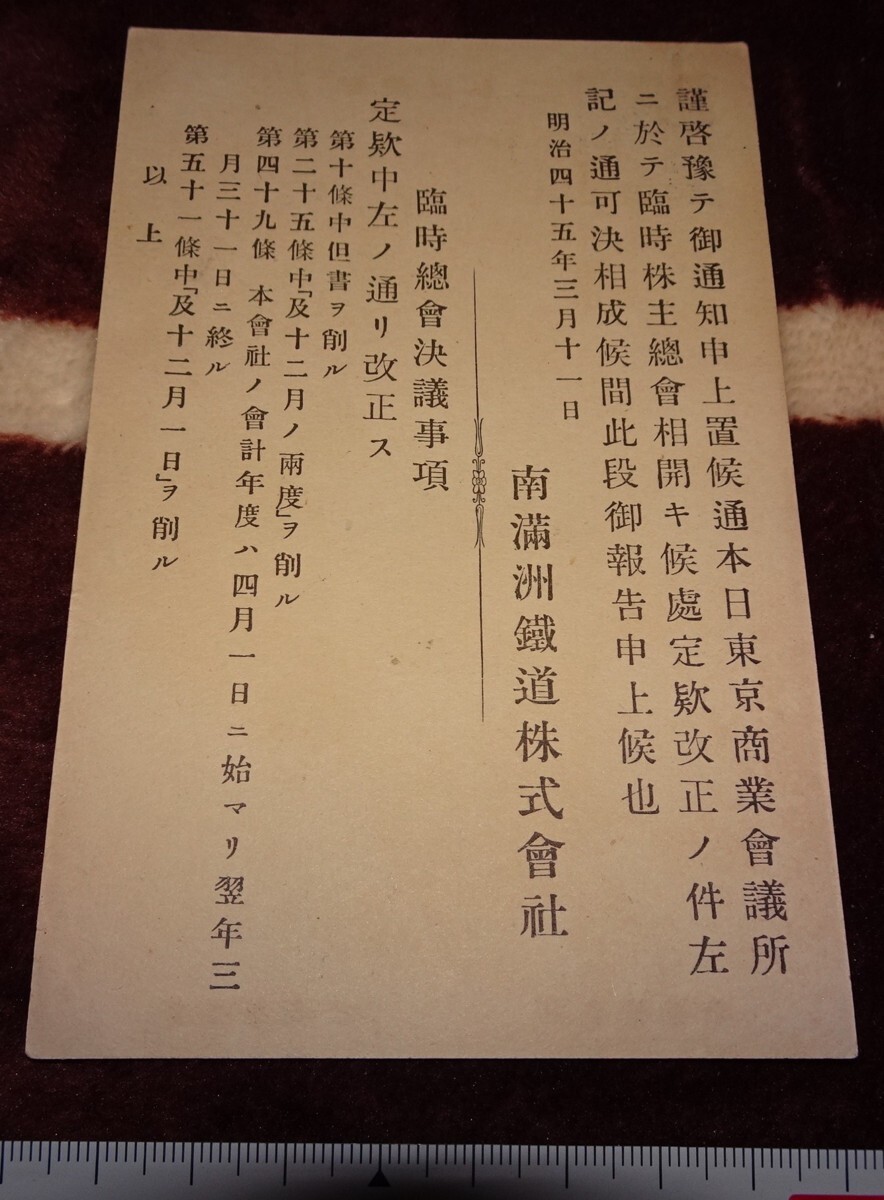 謹啓豫テ御通知申上置候通本日東京商業會議所
ニ於テ臨時株主總會相開キ候處定欵改正ノ件左
記ノ通可決相成候間此段御報告申上候也
明治四十五年三月十一日
南滿洲鐵道株式會社
臨時總會決議事項
定欵中左ノ通リ改正ス
第十條中但書ヲ削ル
第二十五條中「及十二月ノ兩度」ヲ削ル
第四十九條 本會社ノ會計年度ハ四月一日ニ始マリ翌年三
月三十一日ニ終ル
第五十一條中「及十二月一日」ヲ削ル
以上